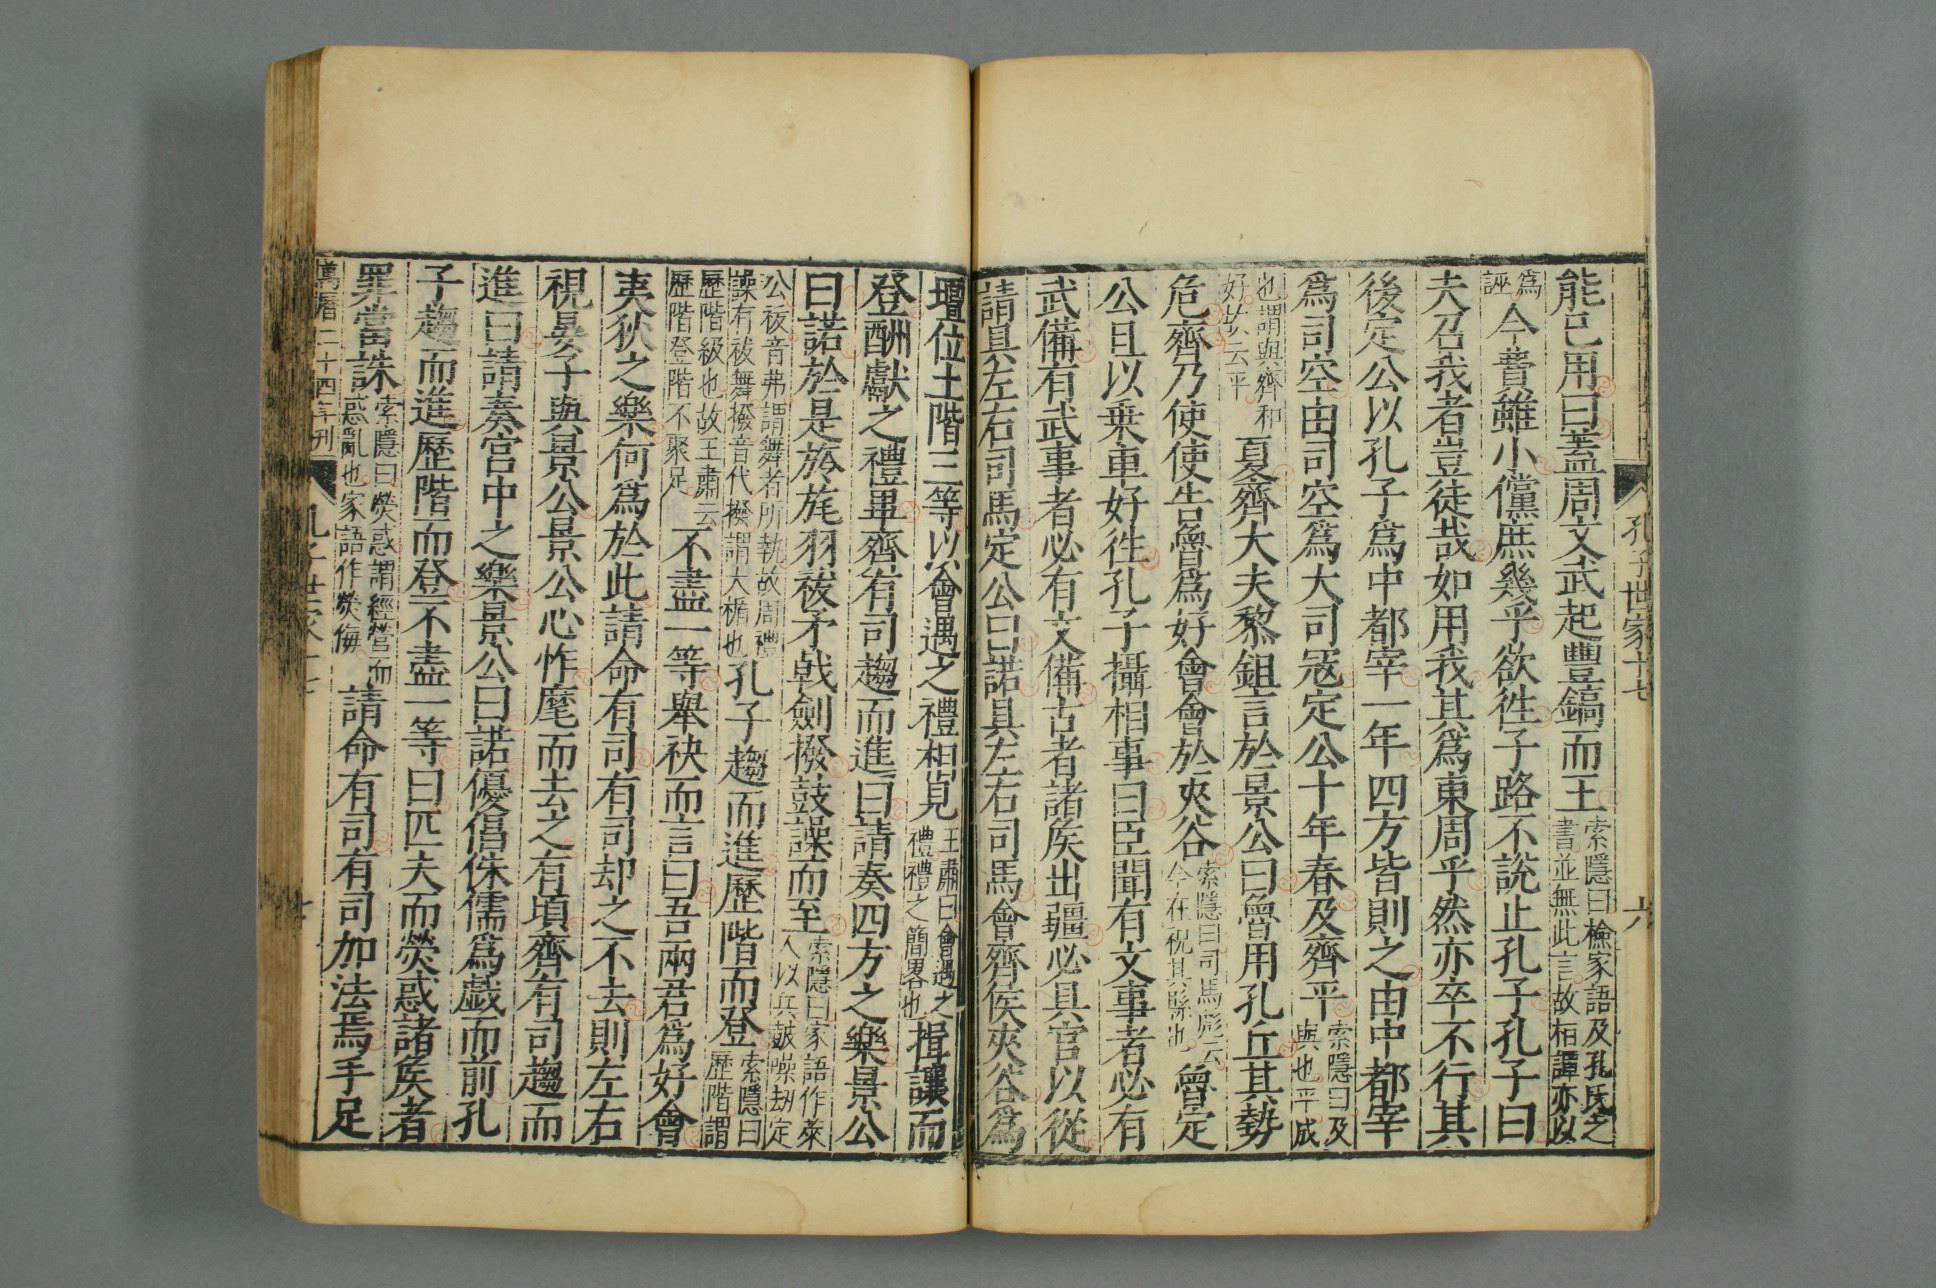 孔子世家十七
六
能已用曰蓋周文武起豐鎬而王索隱曰檢家語及孔氏之書並無此言故桓譚亦以
爲誣今費雖小儻庶幾乎欲徃子路不說止孔子孔子曰
夫召我者豈徒哉如用我其爲東周乎然亦卒不行其
後定公以孔子爲中都宰一年四方皆則之由中都宰
爲司空由司空爲大司冦定公十年春及齊平索隱曰及與也平成
也謂與齊和好故云平夏齊大夫黎鉏言於景公曰魯用孔丘其勢
危齊乃使使告魯爲好會會於夾谷索隱曰司馬彪云今在祝其縣也魯定
公且以乗車好徃孔子攝相事曰臣聞有文事者必有
武備有武事者必有文備古者諸矦出疆必具官以從
請具左右司馬定公曰諾具左右司馬會齊矦夾谷爲
壇位土階三等以會遇之禮相見王肅曰會遇之禮禮之簡畧也揖讓而
登酬獻之禮畢齊有司趨而進曰請奏四方之樂景公
曰諾於是旍旄羽祓矛戟劍撥鼓譟而至索隱曰家語作萊人以兵鼓譟劫定
公祓音弗謂舞者所執故周禮譟有祓舞撥音代撥謂大楯也孔子趨而進歷階而登索隱曰歷階謂
歷階級也故王肅云歷階登階不聚足不盡一等舉袂而言曰吾兩君爲好會
夷狄之樂何爲於此請命有司有司却之不去則左右
視晏子與景公景公心怍麾而去之有頃齊有司趨而
進曰請奏宮中之樂景公曰諾優倡侏儒爲戲而前孔
子趨而進歷階而登不盡一等曰匹夫而熒惑諸矦者
罪當誅索隱曰熒惑謂經營而惑亂也家語作熒侮請命有司有司加法焉手足
萬曆二十四年刋
孔子世家十七